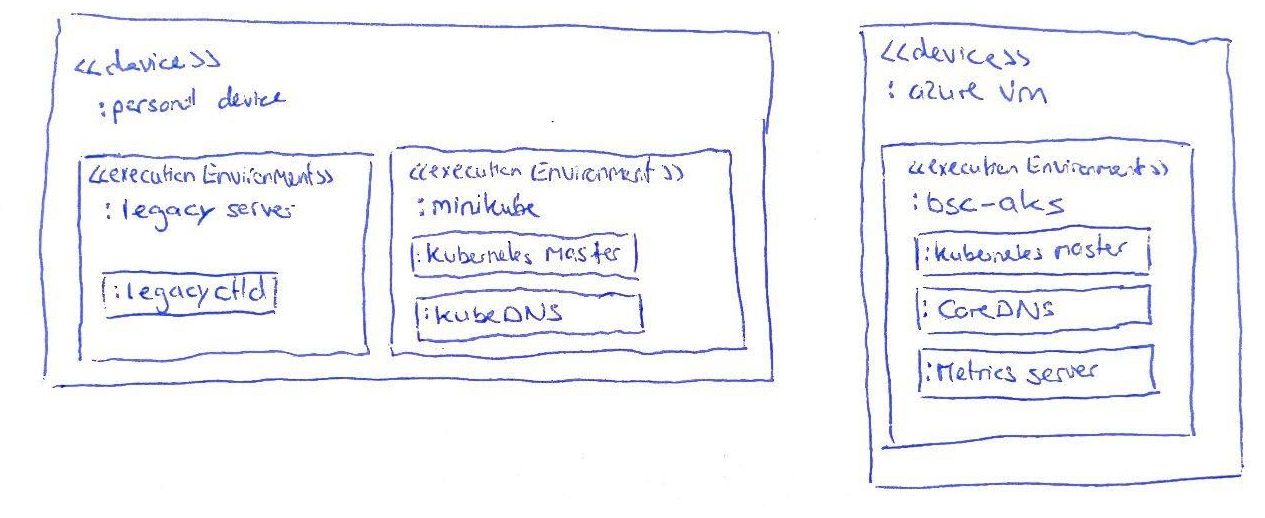 <<device>>
:personal device
<<execution Environment>>
:legacy server
:legacyctld
<<execution Environment>>
:minikube
:Kubernetes Master
:KubeDNS
<<device>>
: azure vm
<<execution Environment>>
:bsc-aks
:Kubernetes master
: CoreDNS
:Metrics server